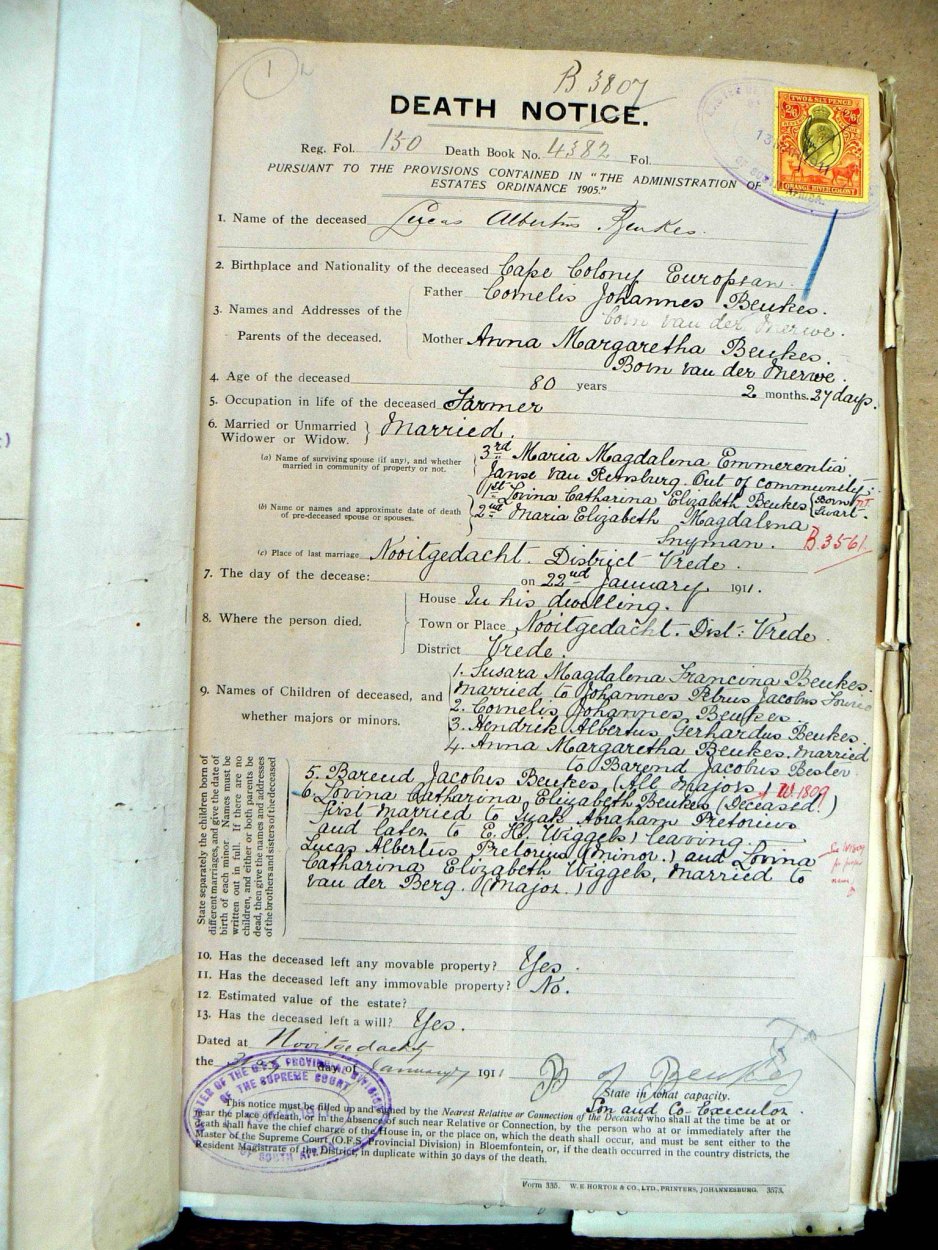 1
B 3807
DEATH NOTICE.
TWO & SIX PENCE
2/6 2/6
ORANGE RIVER COLONY
Reg. Fol. 150 Death Book No. 4382 Fol.
PURSUANT TO THE PROVISIONS CONTAINED IN "THE ADMINISTRATION OF
ESTATES ORDINANCE 1905."
1. Name of the deceased Lucas Albertus Beukes.
2. Birthplace and Nationality of the deceased Cape Colony European.
Father Cornelis Johannes Beukes.
born van der Merwe.
3. Names and Addresses of the
Parents of the deceased.
Mother Anna Margaretha Beukes.
Born van der Merwe.
4. Age of the deceased 80 years 2 months. 27 days.
5. Occupation in life of the deceased Farmer
6. Married or Unmarried
Widower or Widow. Married.
(a) Name of surviving spouse (if any), and whether
married in community of property or not.
3rd Maria Magdalena Emmerentia
Janse van Rensburg. Out of community.
(b) Name or names and approximate date of death
of pre-deceased spouse or spouses.
1st Lovina Catharina Elizabeth Beukes (Born Swart.
2nd Maria Elizabeth Magdalena
Snyman. B.3561
(c) Place of last marriage Nooitgedacht. District Vrede.
7. The day of the decease: on 22nd January 1911.
House In his dwelling.
8. Where the person died. Town or Place Nooitgedacht. Dist: Vrede.
District Vrede.
9. Names of Children of deceased, and
whether majors or minors.
1. Susara Magdalena Francina Beukes.
married to Johannes Petrus Jacobus Fourie
2. Cornelis Johannes Beukes.
3. Hendrik Albertus Gerhardus Beukes.
4. Anna Margaretha Beukes, married
to Barend Jacobus Bester.
State separately the children born of
different marriages, and give the date of
birth of each minor. Names must be
written out in full. If there are no
children, and either or both parents be
dead, then give the names and addresses
of the brothers and sisters of the deceased
5. Barend Jacobus Beukes (All majors) W.1809
6. Lovina Catharina Elizabeth Beukes (Deceased.)
first married to Izak Abraham Pretorius
and later to Wiggels) leaving
Lucas Albertus Pretorius (Minor.) and Lovina
Catharina Elizabeth Wiggels, married to
van der Berg. (Major.)
10. Has the deceased left any movable property? Yes.
11. Has the deceased left any immovable property? No.
12. Estimated value of the estate?
13. Has the deceased left a will? Yes.
Dated at Nooitgedacht
the day of January 1911
Beukes
State in what capacity.
Son and Co-Executor.
OF THE SUPREME COURT
This notice must be filled up and signed by the Nearest Relative or Connection of the Deceased who shall at the time be at or
near the place of death, or in the absence of such near Relative or Connection, by the person who at or immediately after the
death shall have the chief charge of the House in, or the place on, which the death shall occur, and must be sent either to the
Master of the Supreme Court (O.F.S. Provincial Division) in Bloemfontein, or, if the death occurred in the country districts, the
Resident Magistrate of the District, in duplicate within 30 days of the death.
Form 335. W. E HORTOR & CO., LTD., PRINTERS, JOHANNESBURG. 3573.